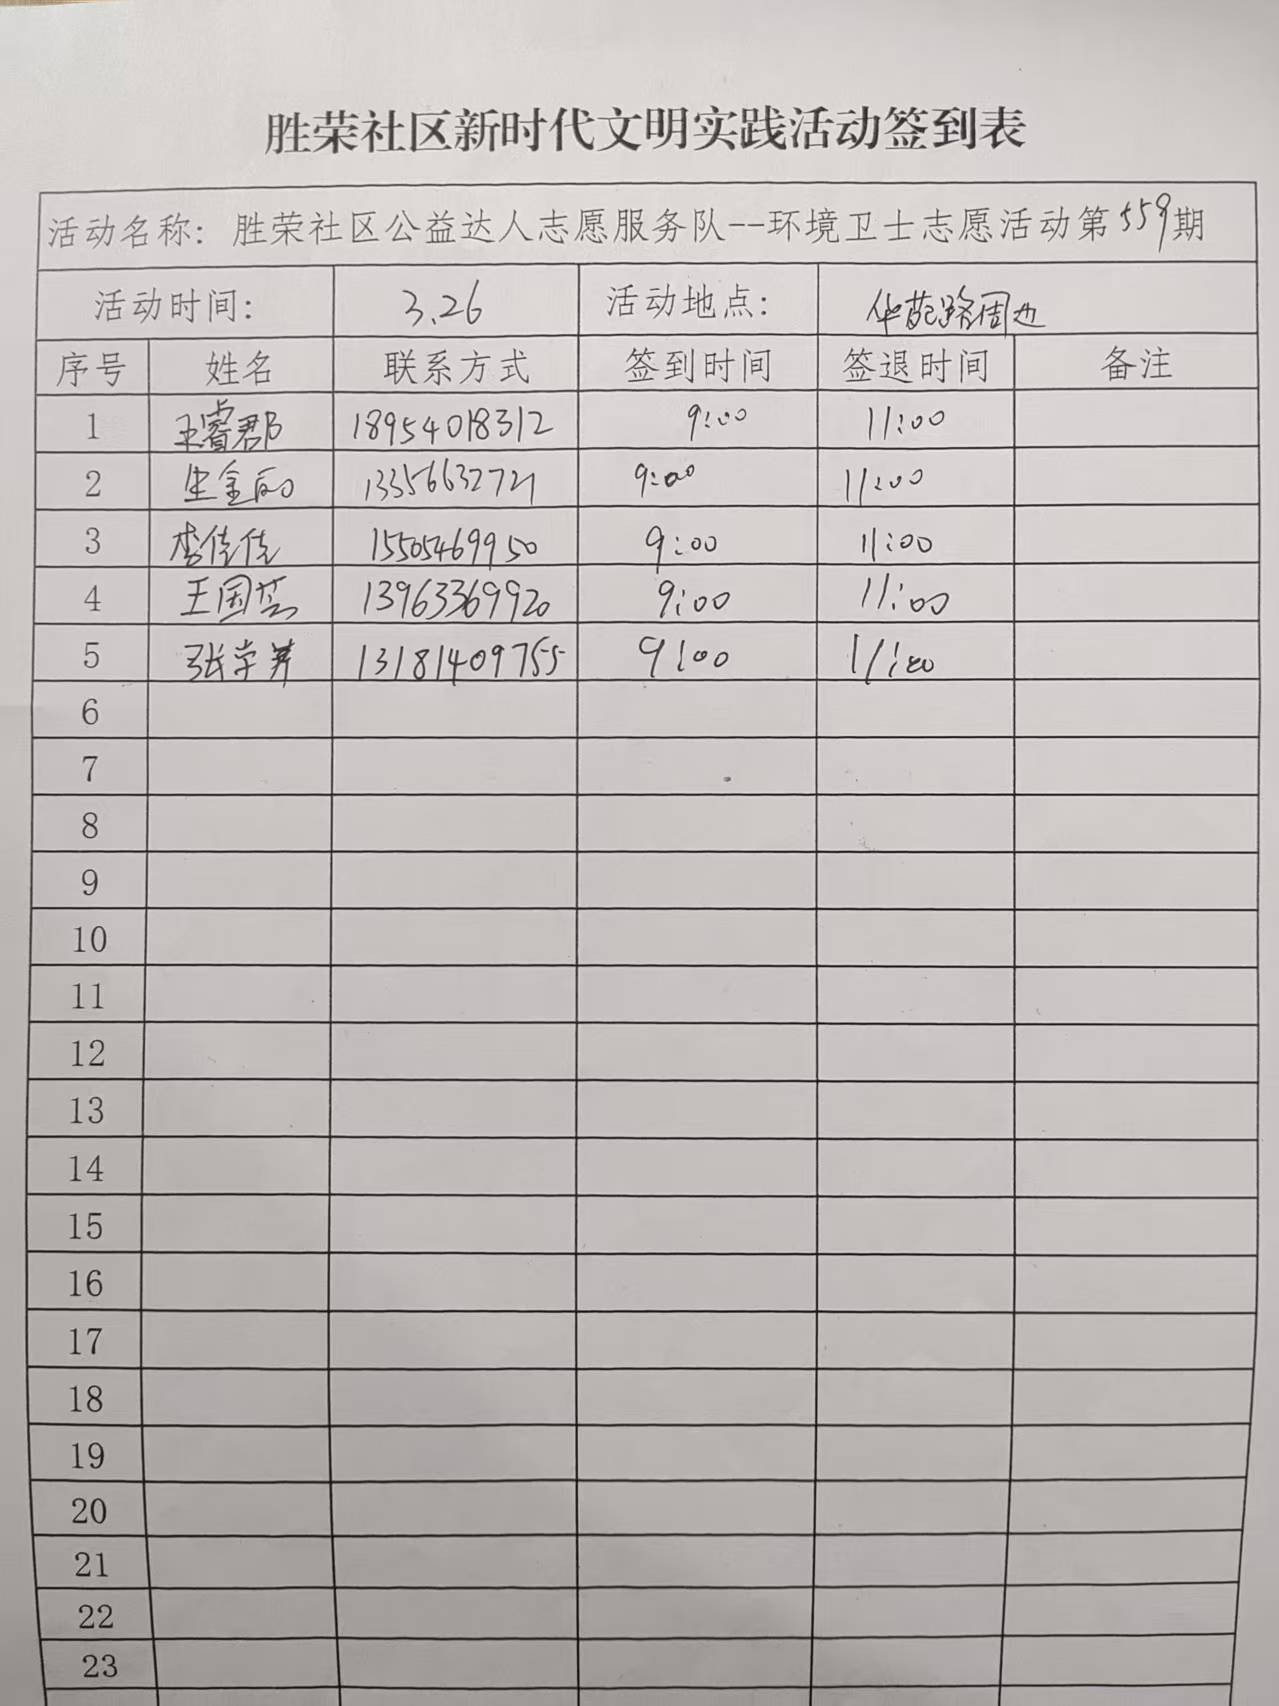 胜荣社区新时代文明实践活动签到表
活动名称：胜荣社区公益达人志愿服务队--环境卫士志愿活动第559期
活动时间： 3.26 活动地点： 华苑路周边
序号 姓名 联系方式 签到时间 签退时间 备注
1 王睿郡 18954018312 9:00 11:00
2 生金 13356632721 9:00 11:00
3 李佳佳 15505469950 9:00 11:00
4 王国 13963369920 9:00 11:00
5 张学 13181409755 9:00 11:00
6
7
8
9
10
11
12
13
14
15
16
17
18
19
20
21
22
23